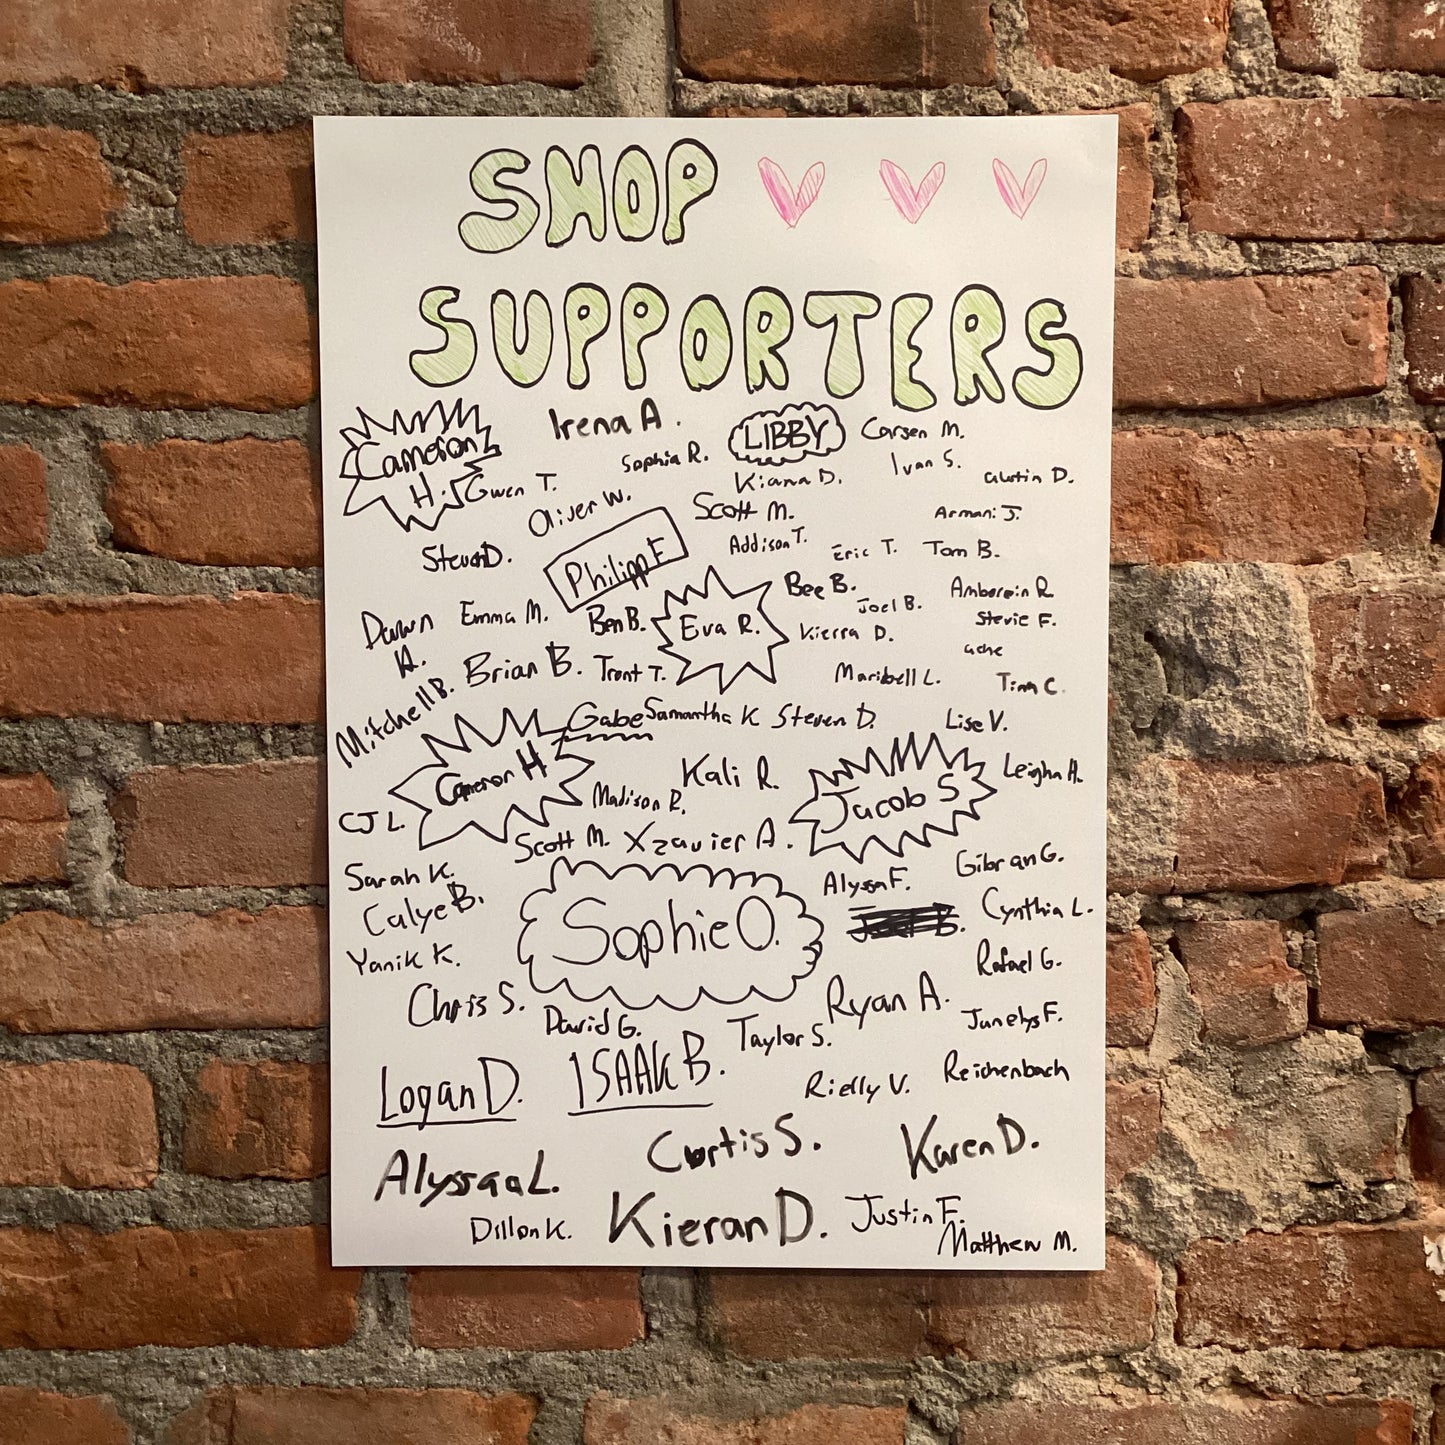 SHOP
SUPPORTERS
Cameron H.
Irena A.
LIBBY
Carsen M.
Sophia R.
Ivan S.
Gwen T.
Kiana D.
Austin D.
Oliver W.
Scott M.
Armani J.
Steven D.
Philipp F
Addison T.
Eric T.
Tom B.
Bee B.
Joel B.
R
Dawn A.
Emma M.
Ben B.
Eva R.
Kierra D.
Stevie F.
ache
Brian B.
Trent T.
Maribell L.
Tim C.
Mitchell B.
Gabe
Samantha K
Steven D.
Lise V.
Cameron H
Madison R.
Kali R.
Jacob S.
Leigha A.
CJ L.
Scott M.
Xzavier A.
Sarah K.
Alyssa F.
Gibran G.
Calye B.
Sophie O.
Cynthia L.
Yanik K.
Rafael G.
Chris S.
David G.
Taylor S.
Ryan A.
Junelys F.
Logan D.
ISAAK B.
Rielly V.
Reichenbach
Alyssaa L.
Curtis S.
Karen D.
Dillon K.
Kieran D.
Justin F.
Matthew M.